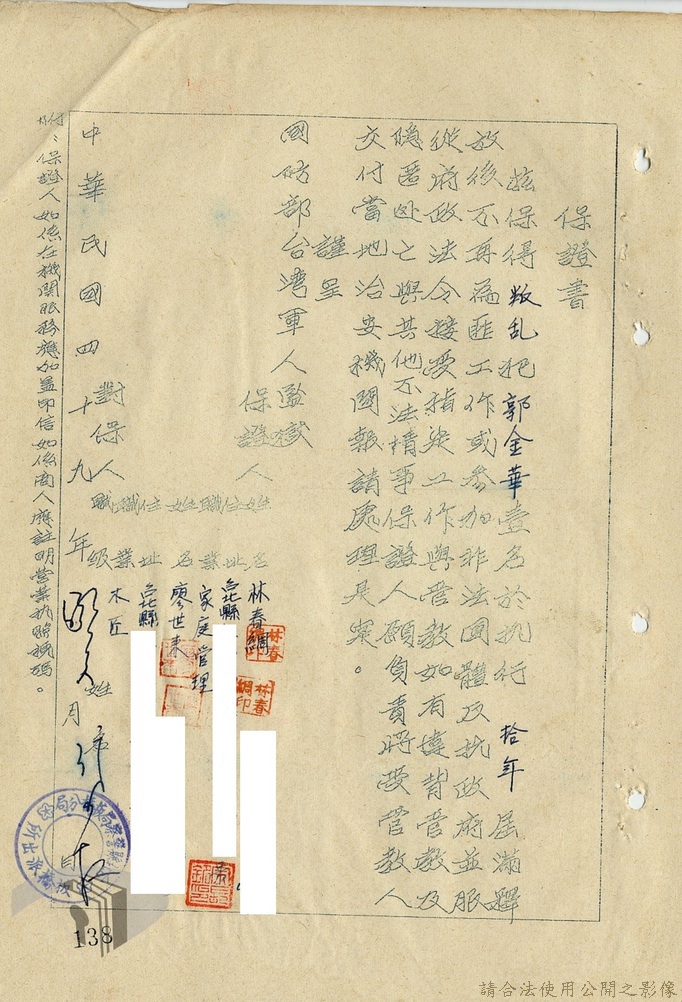 保證書
茲保得叛乱犯郭金華壹名於执行拾年屆滿釋
放後不再為匪工作或参加非法團體及抗政府並服
從府政法令接受指染工作與管教如有違背管教及
隐匿处之與其他不法情事保證人願負責將受管教人
交付當地治安機関報請處理是寔。
謹呈
國防部台湾軍人監獄
保證人
姓名 林春綢
住址 台北縣
職業 家庭管理
姓名 廖世來
住址 台北縣
職業 木匠
職級
對保人
姓
中華民國四十九年 月 日
附：保證人如係在機関服務應加盖印信如係商人應註明營業执照號碼。
林春綢印
林春綢印
138
請合法使用公開之影像